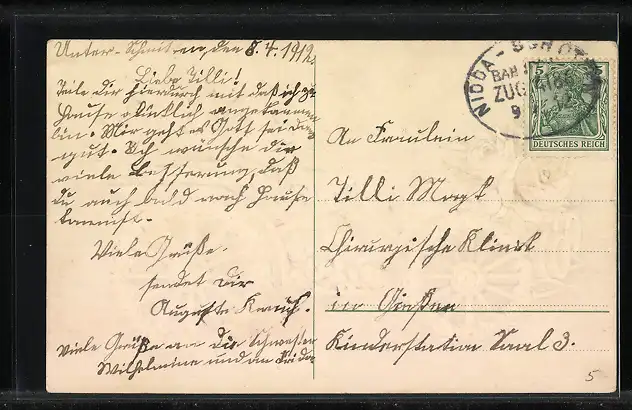 Unter-Schmitten, den 8.4.1912.
Liebe Tilli!
Teile dir hierdurch mit daß ich zu
Hause glücklich angekommen
bin. Mir geht es Gott sei dank
gut. Ich wünsche dir
viele Besserung, daß
du auch bald nach Hause
kommst.
Viele Grüße.
sendet dir
Auguste
Viele Grüße an die Schwester
Wilhelmine und an Frida
NIDDA - SCHOTTEN
BAHNPOST
ZUG
9
5
DEUTSCHES REICH
An Fräulein
Tilli
Chirurgische Klinik
in Gießen
Kinderstation Saal 3.
5